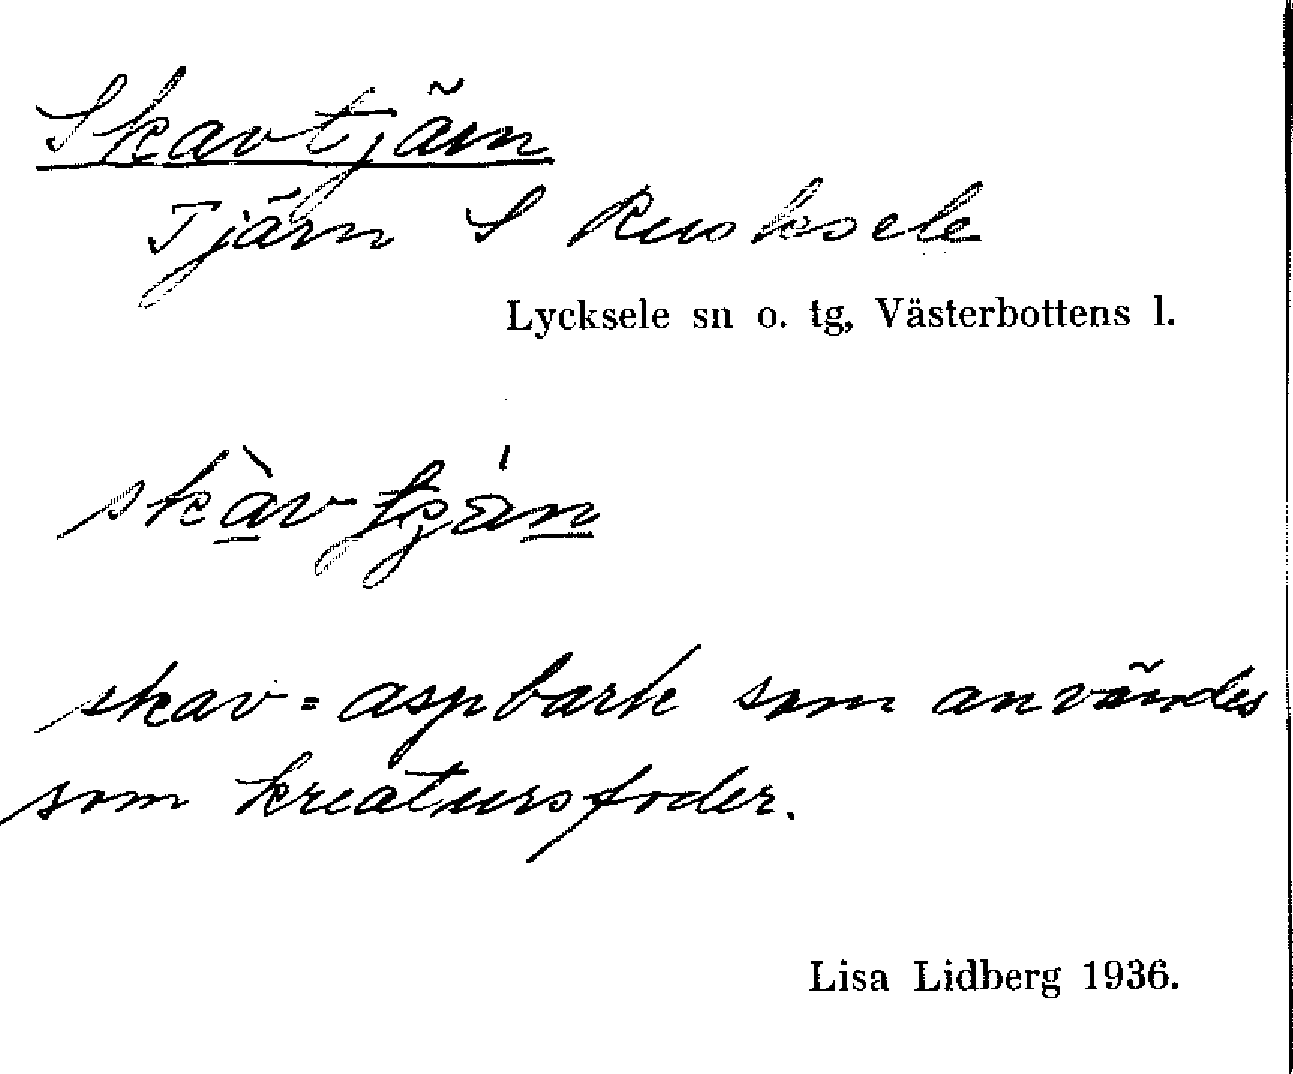 Skavtjärn
Tjärn S Rusksele
Lycksele sn o. tg, Västerbottens l.
skav = aspbark som användes
som kreatursfoder.
Lisa Lidberg 1936.